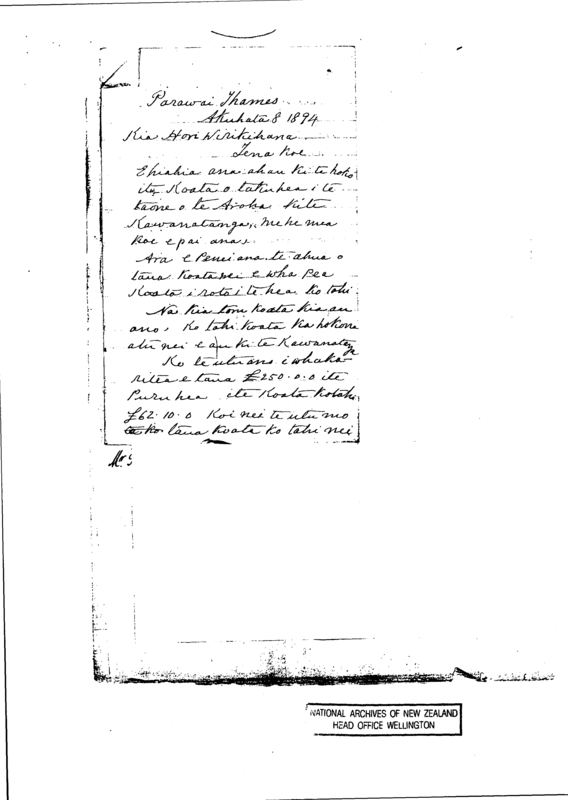 Parawai Thames
Akuhata 8 1894
Kia Hori Wirikihana
Tena Koe
Ehiahia ana ahau ki te hoko
ite Koata o taku hea i te
taone o te Aroha kite
Kawanatanga, mehemea
koe e pai ana.
Ara e penei ana te ahua o
taua Koata nei e wha pea
Koata i roto i te hea ko tahi
Na kia toru koata kia au
ano, Ko tahi koata ka hokona
atu nei e au ki te Kawanatanga
Ko te utu ano i whaka-
ritea e taua £250.0.0 ite
Puru hea ite Koata kotahi
£62.10.0 Koi nei te utu mo
taua koata ko tahi nei
NATIONAL ARCHIVES OF NEW ZEALAND
HEAD OFFICE WELLINGTON